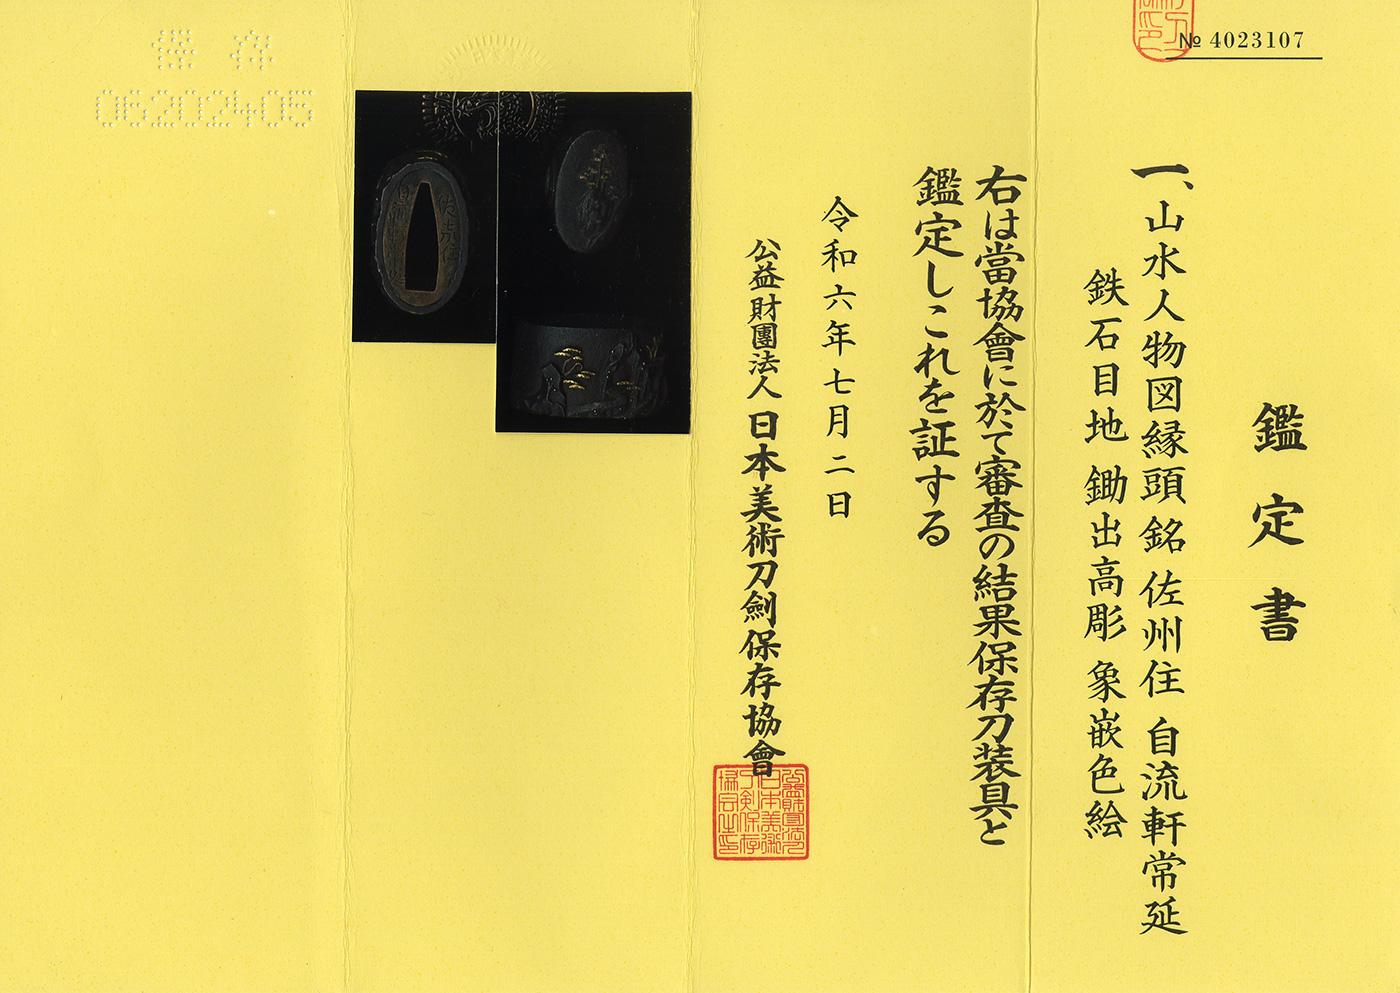 № 4023107
鑑定書
一、山水人物図縁頭 銘 佐州住 自流軒常延
鉄石目地 鋤出高彫 象嵌色絵
右は當協會に於て審査の結果保存刀装具と
鑑定しこれを証する
令和六年七月二日
公益財團法人 日本美術刀劍保存協會
保存
06202405
佐州住